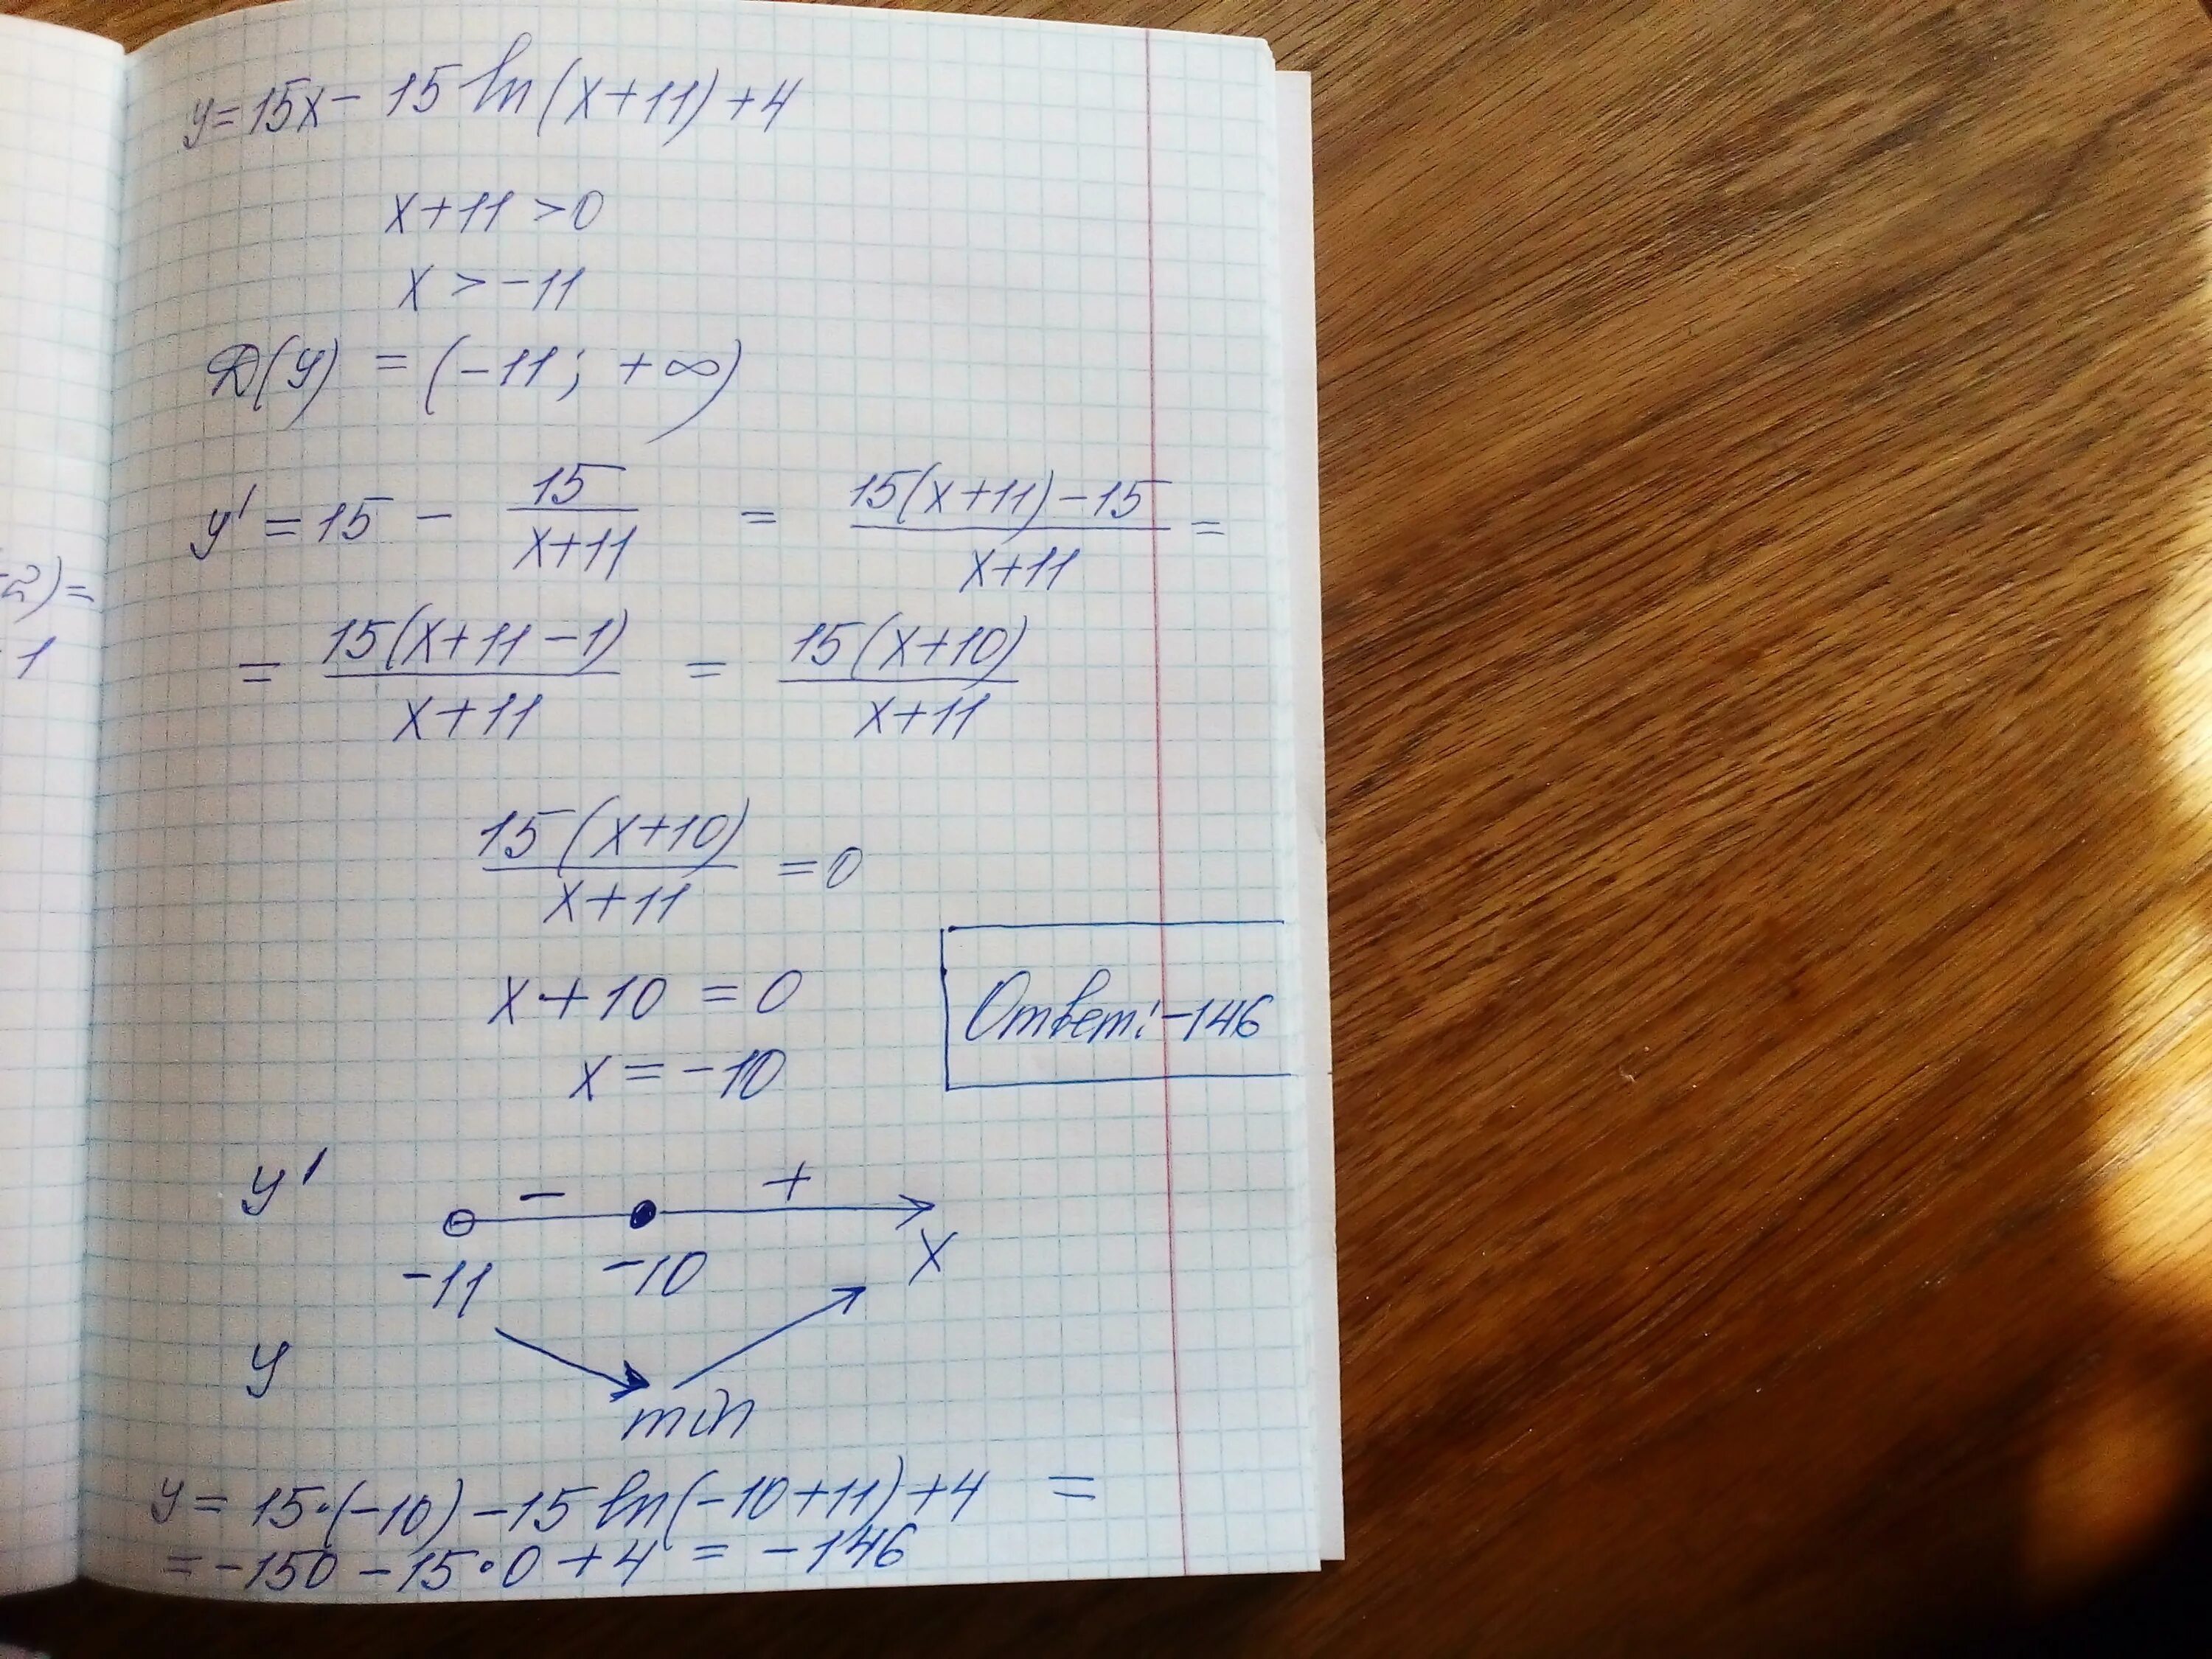 y=15x-15 ln(x+11)+4
x+11>0
x>-11
D(y) = (-11; +∞)
y' = 15 - 15/(x+11) = (15(x+11)-15)/(x+11) =
= 15(x+11-1)/(x+11) = 15(x+10)/(x+11)
15(x+10)/(x+11) = 0
x+10 = 0
x = -10
Ответ: -146
y' - +
-11 -10 x
y
min
y = 15·(-10) - 15 ln(-10+11)+4 =
= -150 - 15·0 + 4 = -146
2)=
1